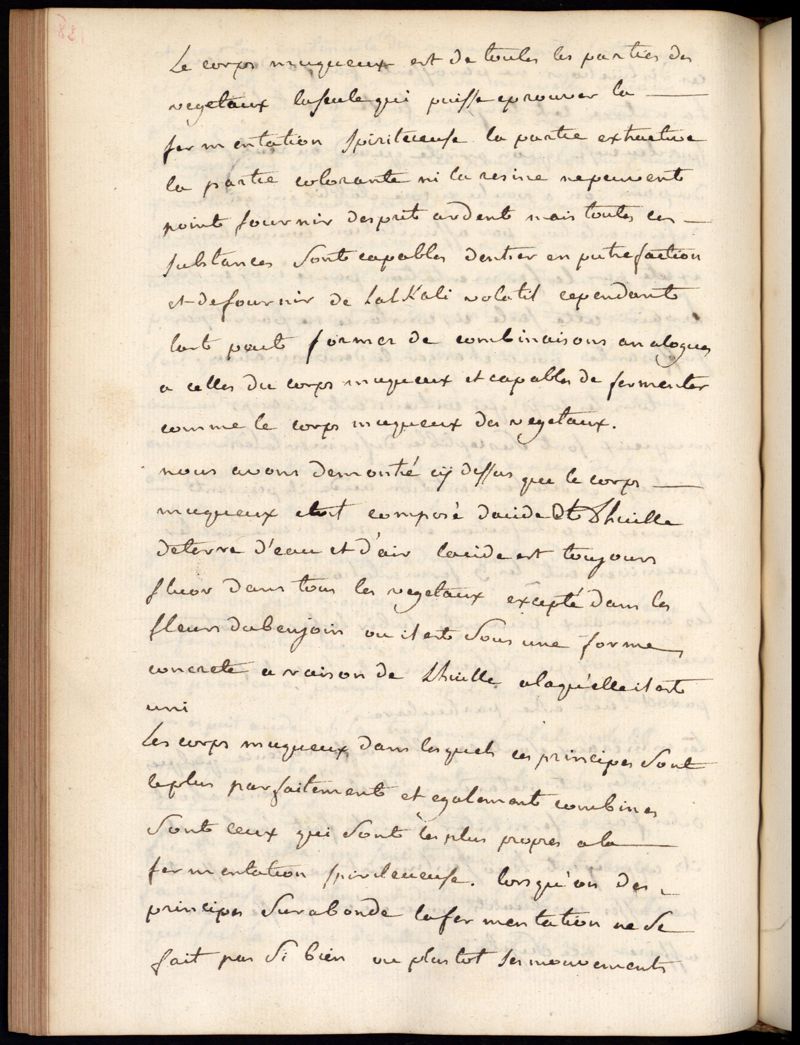 82.
Le corps muqueux est de toutes les parties des
vegetaux la seule qui puisse eprouver la
fermentation spiritueuse la partie extractive
la partie colorante ni la resine ne peuvent
point fournir desprit ardent mais toutes ces
substances sont capables dentrer en putrefaction
et de fournir de Lalkali volatil cependant
lart peut former de combinaisons analogues
a celles du corps muqueux et capables de fermenter
comme le corps muqueux des vegetaux.
nous avons demontré cy dessus que le corps
muqueux etoit composé dacide Et Dhuille
de terre d'eau et d'air lacide est toujours
fluor dans tous les vegetaux excepté dans les
fleurs du benjoin ou il est sous une forme
concrete a raison de Lhuille a laquelle il est
uni
Les corps muqueux dans lesquels ces principes sont
le plus parfaitement et egalement combines
sont ceux qui sont les plus propres a la
fermentation spiritueuse. lorsqu'on des
principes surabonde la fermentation ne se
fait pas si bien ou plustot ses mouvements